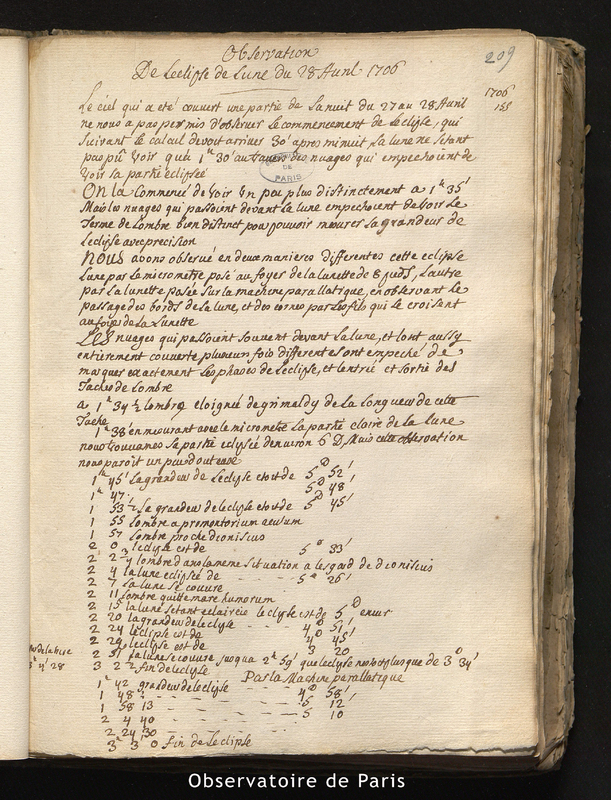 209
Observation
De Leclipse de Lune du 28 Avril 1706
1706
155
Le ciel qui a eté couvert une partie de La nuit du 27 au 28 Avril
ne nous a pas permis d'observer Le commencement de Leclipse, qui
suivant le calcul devoit arriver 30' apres minuit La lune ne setant
pas pû voir qu'à 1h 30' au travers des nuages qui empechoient de
voir sa partie eclipsée
DE
PARIS
On la Commencé de voir un peu plus distinctement a 1h 35'
Mais les nuages qui passoient devant la lune empechoient de voir Le
Terme de Lombre bien distinct pour pouvoir mesurer La grandeur de
Leclipse avec precision
Nous avons observé en deux manieres differentes cette eclipse
Lune par Le micrometre posé au foyer de la lunette de 8 pieds, Lautre
par La lunette posée sur la machine parallatique, en observant Le
passage des bords de La lune, et des cornes par Les fils qui se croisent
au foyer de La Lunette
Les nuages qui passoient souvent devant La lune, et Lont aussy
entierement couverte plusieurs fois differentes ont empeché de
marquer exactement Les phases de Leclipse, et Lentrée et sortie des
Taches de Lombre
a 1h 34 1/2 Lombre eloignée de grimaldy de La longueur de cette
Tache
1h 38' en mesurant avec le micrometre La partie claire de la Lune
nous trouvames La partie eclipsée denviron 6 D. Mais cette observation
nous paroit un peu douteuse
1h 45' La grandeur de Leclipse etoit de 5D 52'
1h 47' 5D 48'
1 53 1/2 La grandeur de leclipse etoit de 5D 45'
1 55 Lombre a promontorium acutum
1 57 Lombre proche dionisius
2 0 leclipse est de 5o 33'
2 2 Lombre dans la meme situation a legard de dionisius
2 4 la lune eclipsée de 5o 26'
2 7 La lune se couvre
2 11 Lombre quitte mare humorum
2 15 la lune setant eclaircie leclipse est de 5D environ
2 20 La grandeur de leclipse 4D 51'
2 24 leclipse est de 4D 45'
2 29 leclipse est de 3 20
2 51 La lune se couvre jusqua 2h 59' que leclipse nest plus que de 3D 34'
3 2 1/2 fin de leclipse
Par La Machine parallatique
1h 42 grandeur de leclipse 4D 58'
1 48 5 12
1 58 13 5 10
2 4 40
2 24 30
3h 3 0 fin de Leclipse
Observatoire de Paris